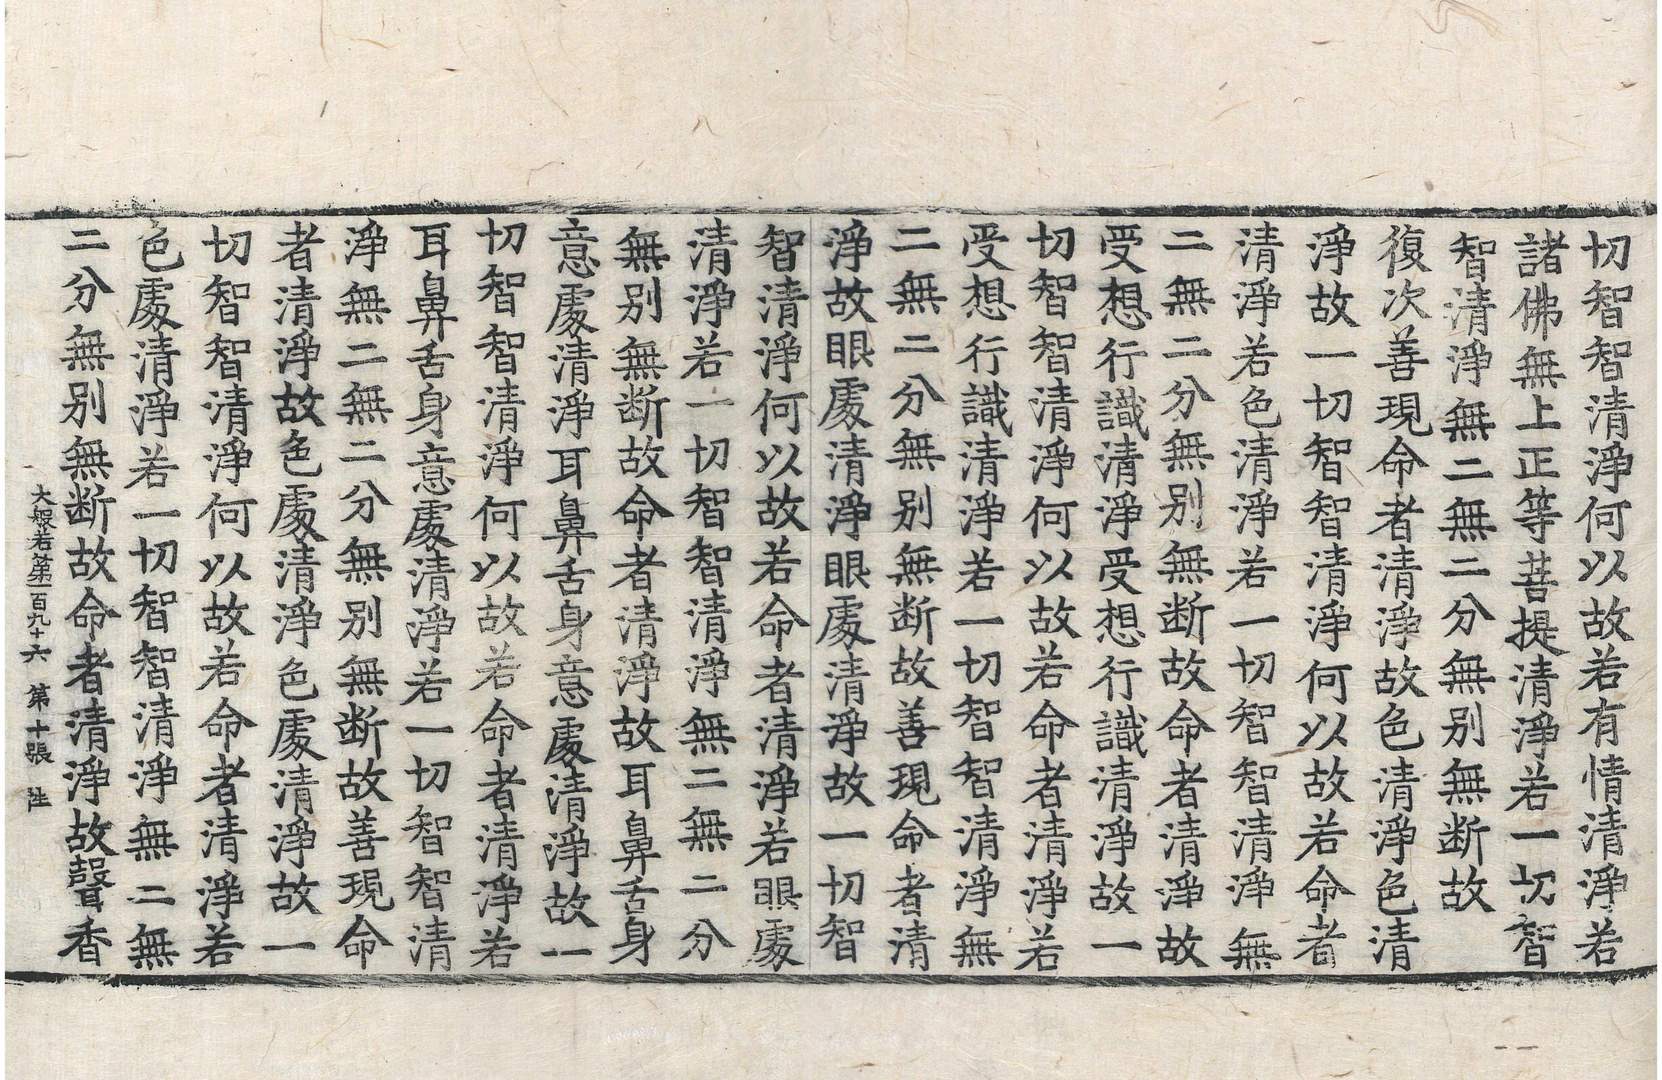 切智智清淨何以故若有情清淨若
諸佛無上正等菩提清淨若一切智
智清淨無二無二分無别無断故
復次善現命者清淨故色清淨色清
淨故一切智智清淨何以故若命者
清淨若色清淨若一切智智清淨無
二無二分無别無断故命者清淨故
受想行識清淨受想行識清淨故一
切智智清淨何以故若命者清淨若
受想行識清淨若一切智智清淨無
二無二分無别無断故善現命者清
淨故眼處清淨眼處清淨故一切智
智清淨何以故若命者清淨若眼處
清淨若一切智智清淨無二無二分
無别無断故命者清淨故耳鼻舌身
意處清淨耳鼻舌身意處清淨故一
切智智清淨何以故若命者清淨若
耳鼻舌身意處清淨若一切智智清
淨無二無二分無别無断故善現命
者清淨故色處清淨色處清淨故一
切智智清淨何以故若命者清淨若
色處清淨若一切智智清淨無二無
二分無别無断故命者清淨故聲香
大般若第一百九十六 第十張